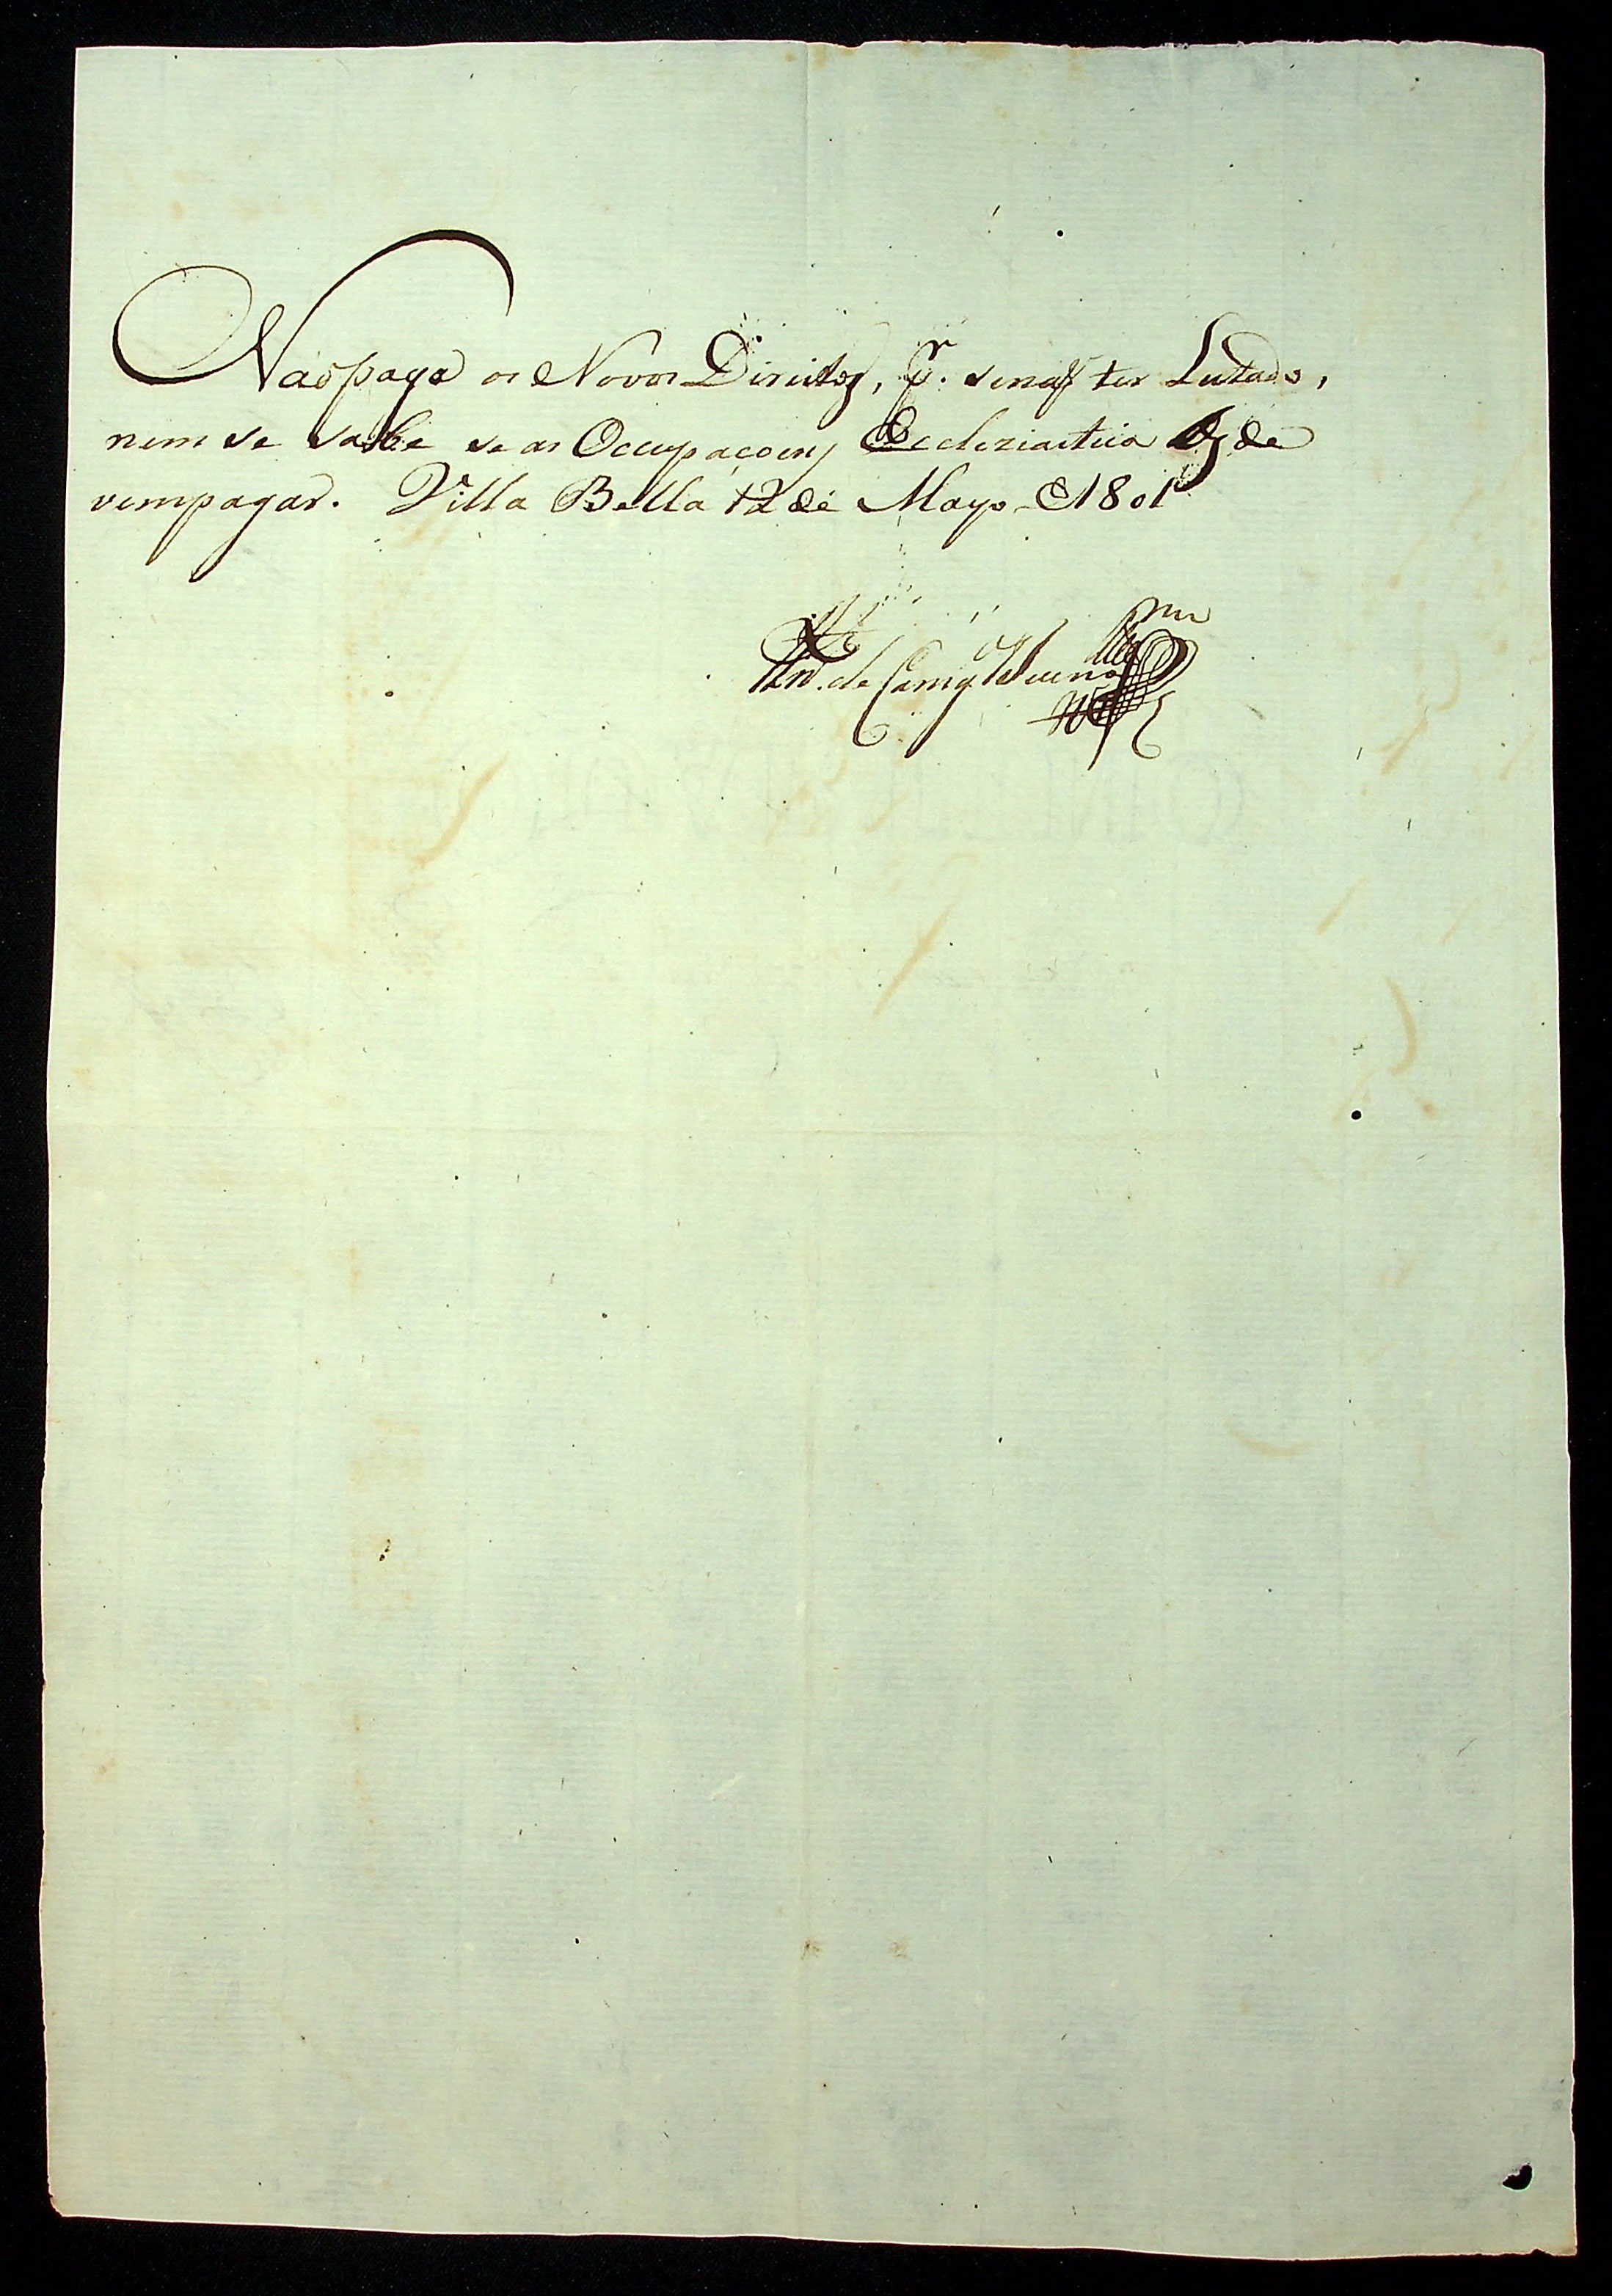 Naõ paga os Novos Direitos, pr. senaõ ter Lutado,
nem se sabe se as Occupaçoens Ecleziasticas os de
vem pagar. Villa Bella 12 de Mayo de 1801
de